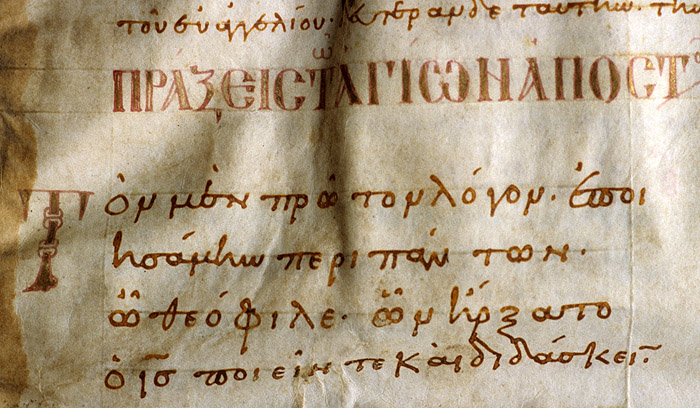 τοῦ εὐαγγελίου. δευτέραν δὲ ταύτην. τὴν
ΠΡΑΞΕΙΣ ΤῶΑΓΊΩΝ ἈΠΟΣΤ
Τὸν μὲν πρῶτον λόγον. ἐποι
ησάμην περὶ πάντων.
ὦ θεόφιλε. ὧν ἤρξατο
ὁ ισ ποιεῖν τε καὶ διδάσκειν